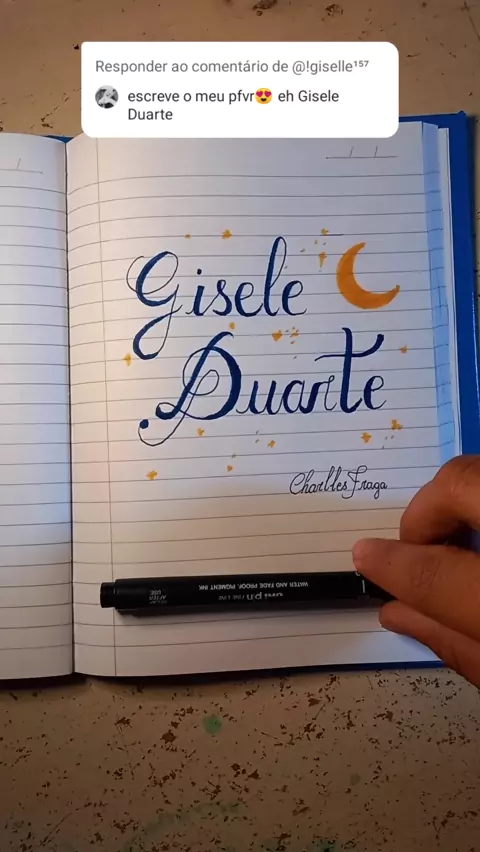 Responder ao comentário de @!giselle¹⁵⁷
escreve o meu pfvr😍 eh Gisele
Duarte
Gisele
Duarte
Charlles Fraga
uni pin FINE LINE
WATER AND FADE PROOF, PIGMENT INK
AFTER
USE